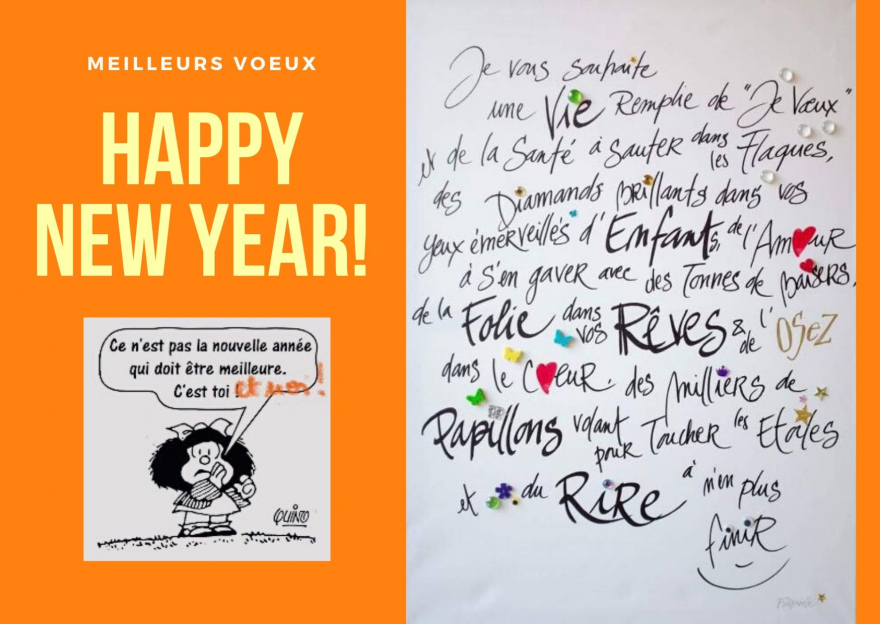 MEILLEURS VOEUX
HAPPY
NEW YEAR!
Ce n'est pas la nouvelle année
qui doit être meilleure.
C'est toi ! et moi !
QUINO
Je vous souhaite
une Vie Remplie de "Je Vœux"
et de la Santé à Sauter dans les Flaques,
des Diamands Brillants dans vos
yeux émerveillés d'Enfants, de l'Amour
à s'en gaver avec des Tonnes de baisers,
de la Folie dans vos Rêves & de l'OSEZ
dans le Cœur, des Milliers de
Papillons volant pour Toucher les Etoiles
et du RiRe à n'en plus
finiR